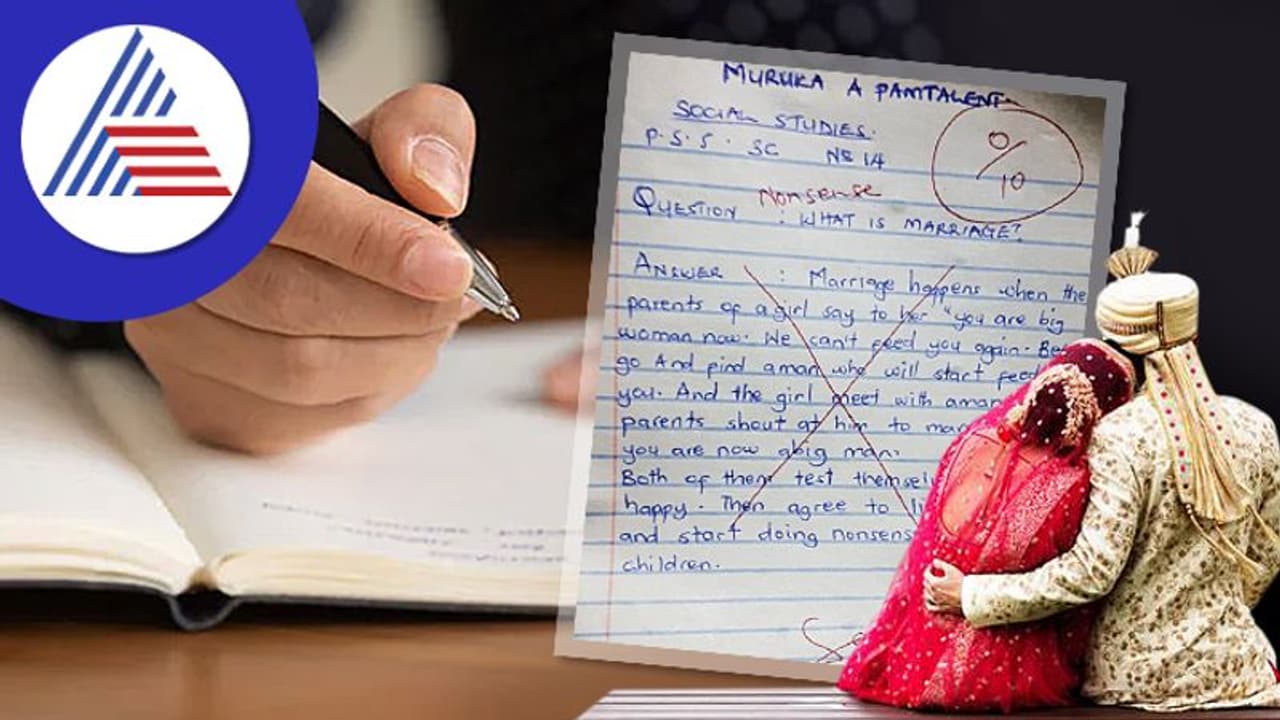 MURUKA A PAMTALENT
SOCIAL STUDIES.
P.S.5. SC Nº 14
0/10
Nonsense
QUESTION : WHAT IS MARRIAGE?
ANSWER : Marriage happens when the
parents of a girl say to her "you are big
woman now. We can't feed you again.
go And find aman who will start feed
you. And the girl meet with aman
parents shout at him to
you are now abig man.
Both of them test
happy. Then agree to
and start doing
children.